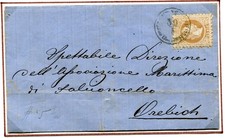 Spettabile Direzione
dell'Associazione Marittima
di Sabioncello
Orebich